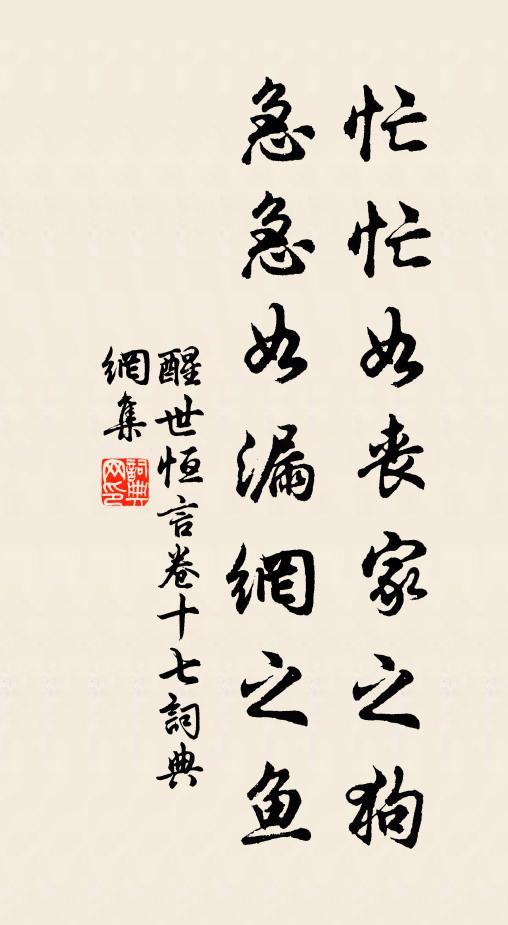 忙忙如丧家之狗
急急如漏網之鱼
醒世恒言卷十七詞典
網集
詞典网印